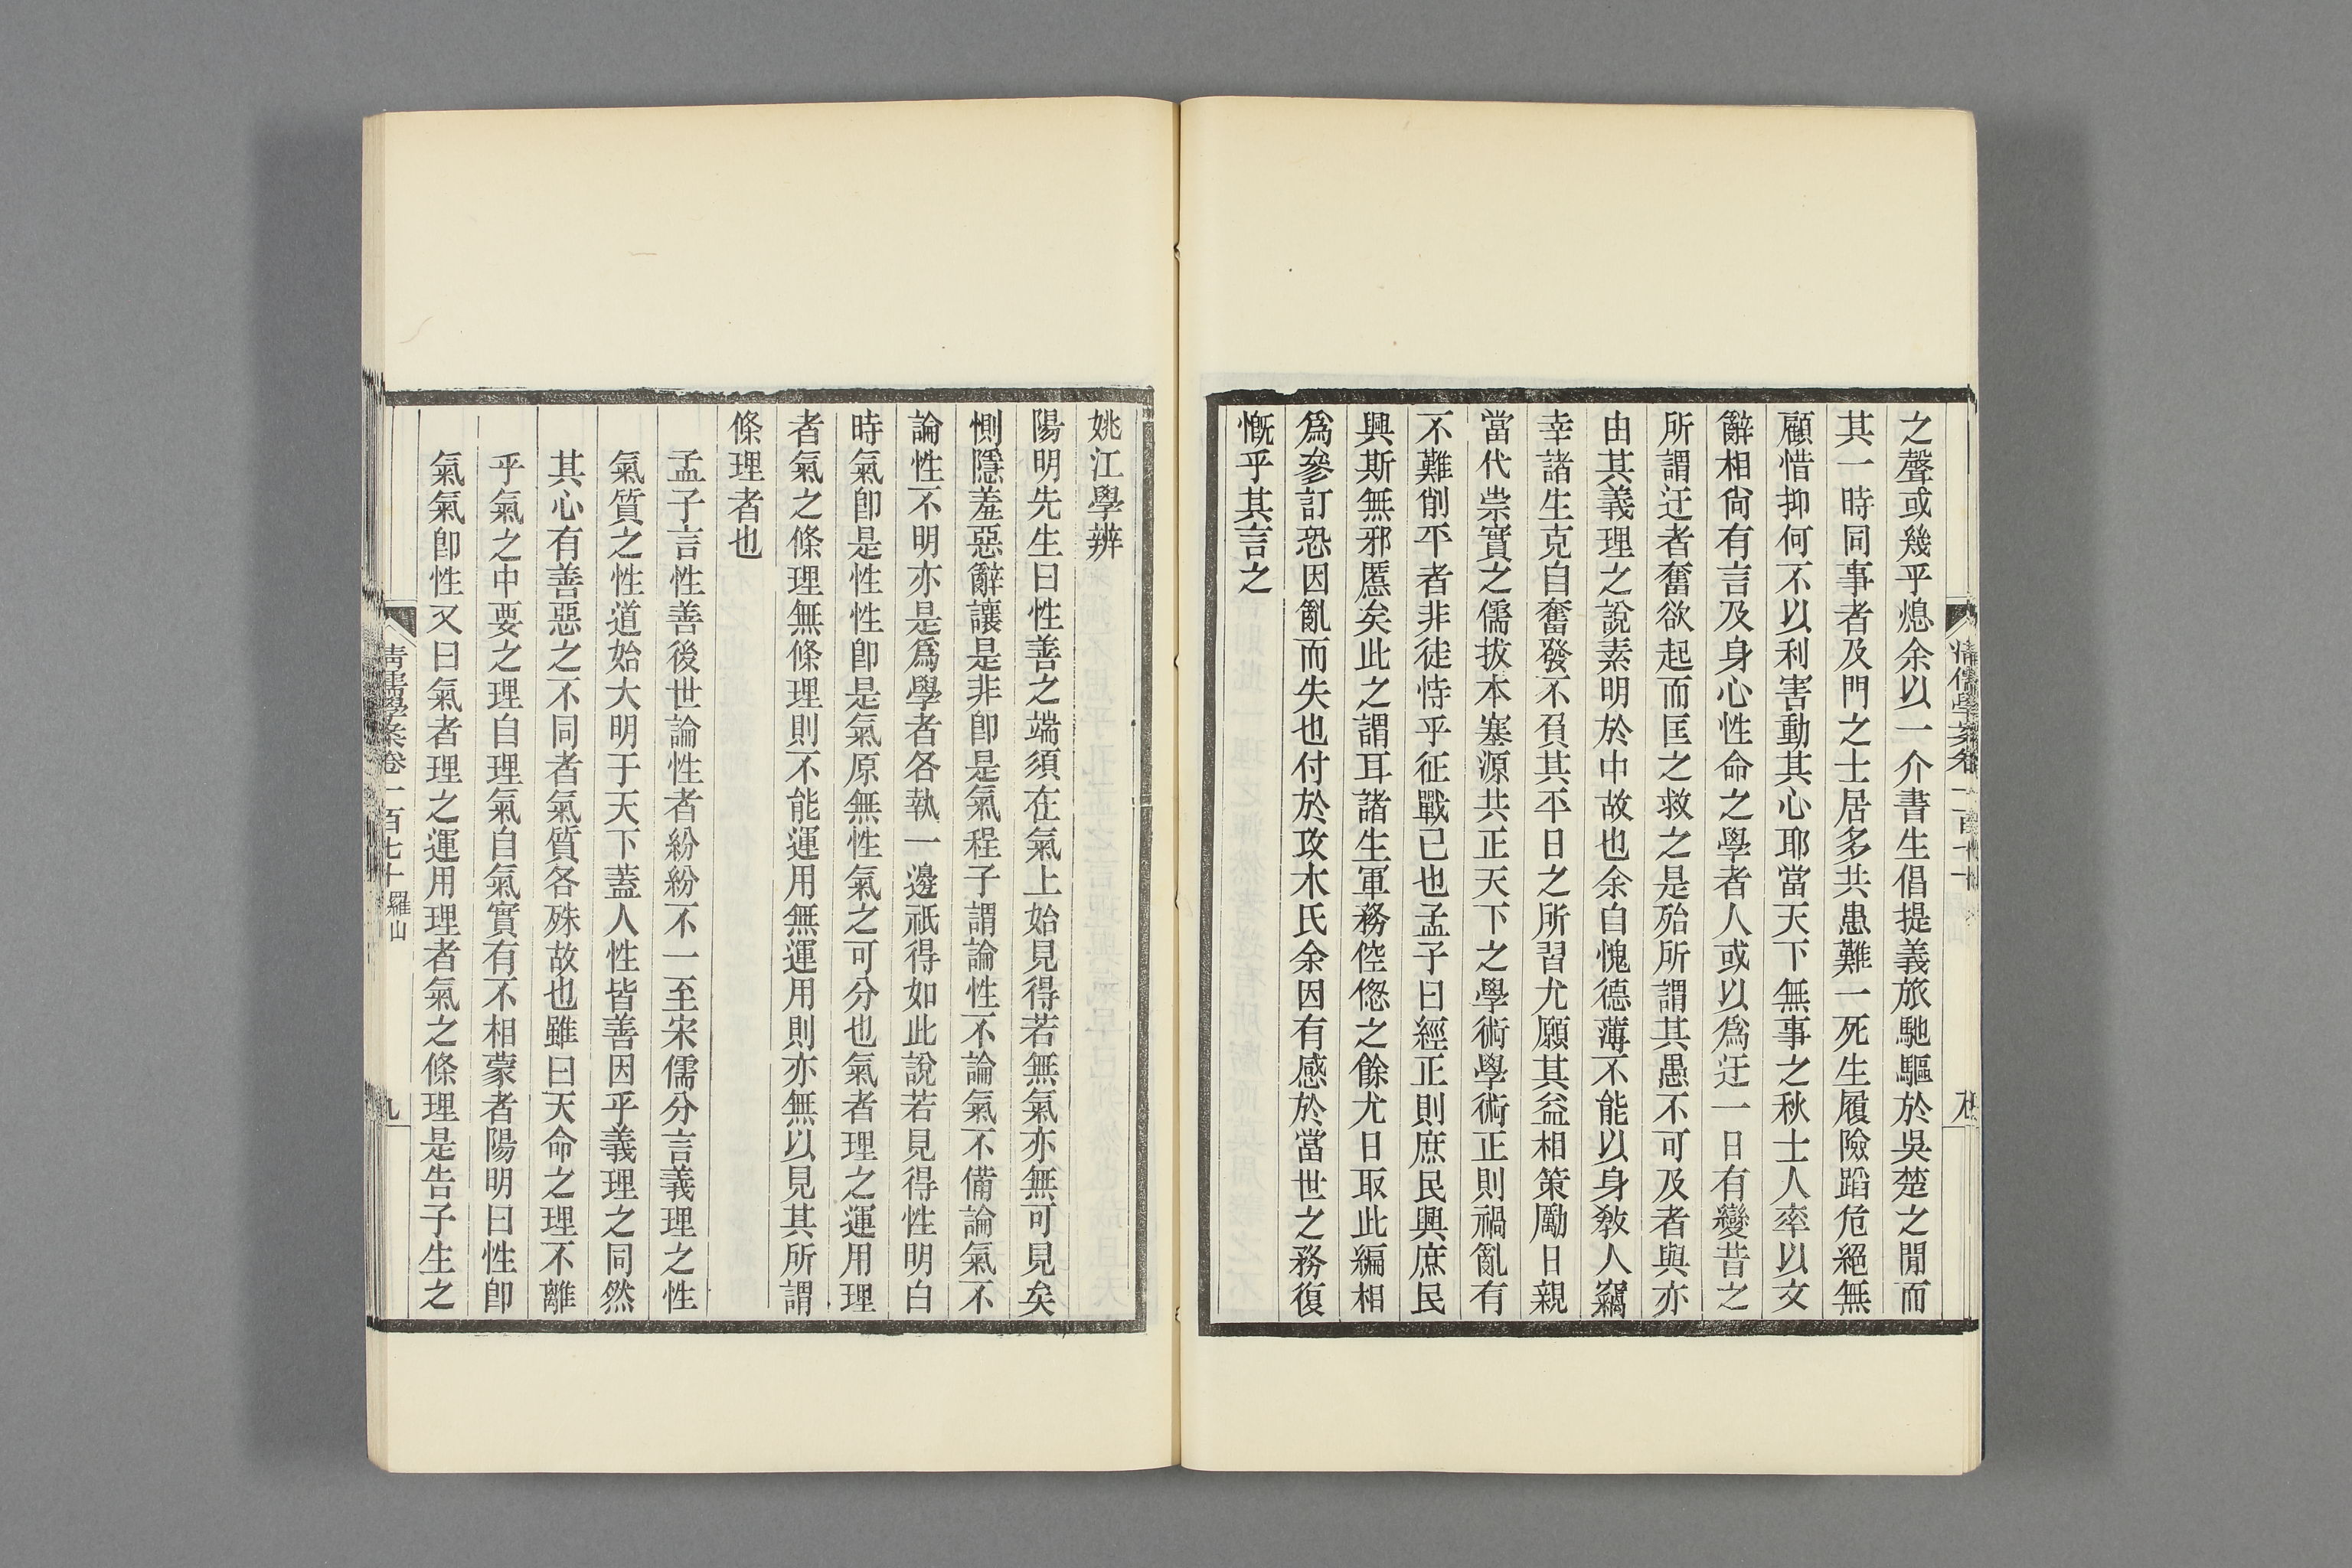 之聲或幾乎熄余以一介書生倡提義旅馳驅於吳楚之閒而
其一時同事者及門之士居多共患難一死生履險蹈危絕無
顧惜抑何不以利害動其心耶當天下無事之秋士人率以文
辭相尙有言及身心性命之學者人或以爲迂一日有變昔之
所謂迂者奮欲起而匡之救之是殆所謂其愚不可及者與亦
由其義理之說素明於中故也余自愧德薄不能以身敎人竊
幸諸生克自奮發不負其平日之所習尤願其益相策勵日親
當代崇實之儒拔本塞源共正天下之學術學術正則禍亂有
不難削平者非徒恃乎征戰已也孟子曰經正則庶民興庶民
興斯無邪慝矣此之謂耳諸生軍務倥傯之餘尤日取此編相
爲參訂恐因亂而失也付於攻木氏余因有感於當世之務復
慨乎其言之
姚江學辨
陽明先生曰性善之端須在氣上始見得若無氣亦無可見矣
惻隱羞惡辭讓是非卽是氣程子謂論性不論氣不備論氣不
論性不明亦是爲學者各執一邊祇得如此說若見得性明白
時氣卽是性性卽是氣原無性氣之可分也氣者理之運用理
者氣之條理無條理則不能運用無運用則亦無以見其所謂
條理者也
孟子言性善後世論性者紛紛不一至宋儒分言義理之性
氣質之性道始大明于天下蓋人性皆善因乎義理之同然
其心有善惡之不同者氣質各殊故也雖曰天命之理不離
乎氣之中要之理自理氣自氣實有不相蒙者陽明曰性卽
氣氣卽性又曰氣者理之運用理者氣之條理是告子生之
清儒學案卷一百七十 羅山
九